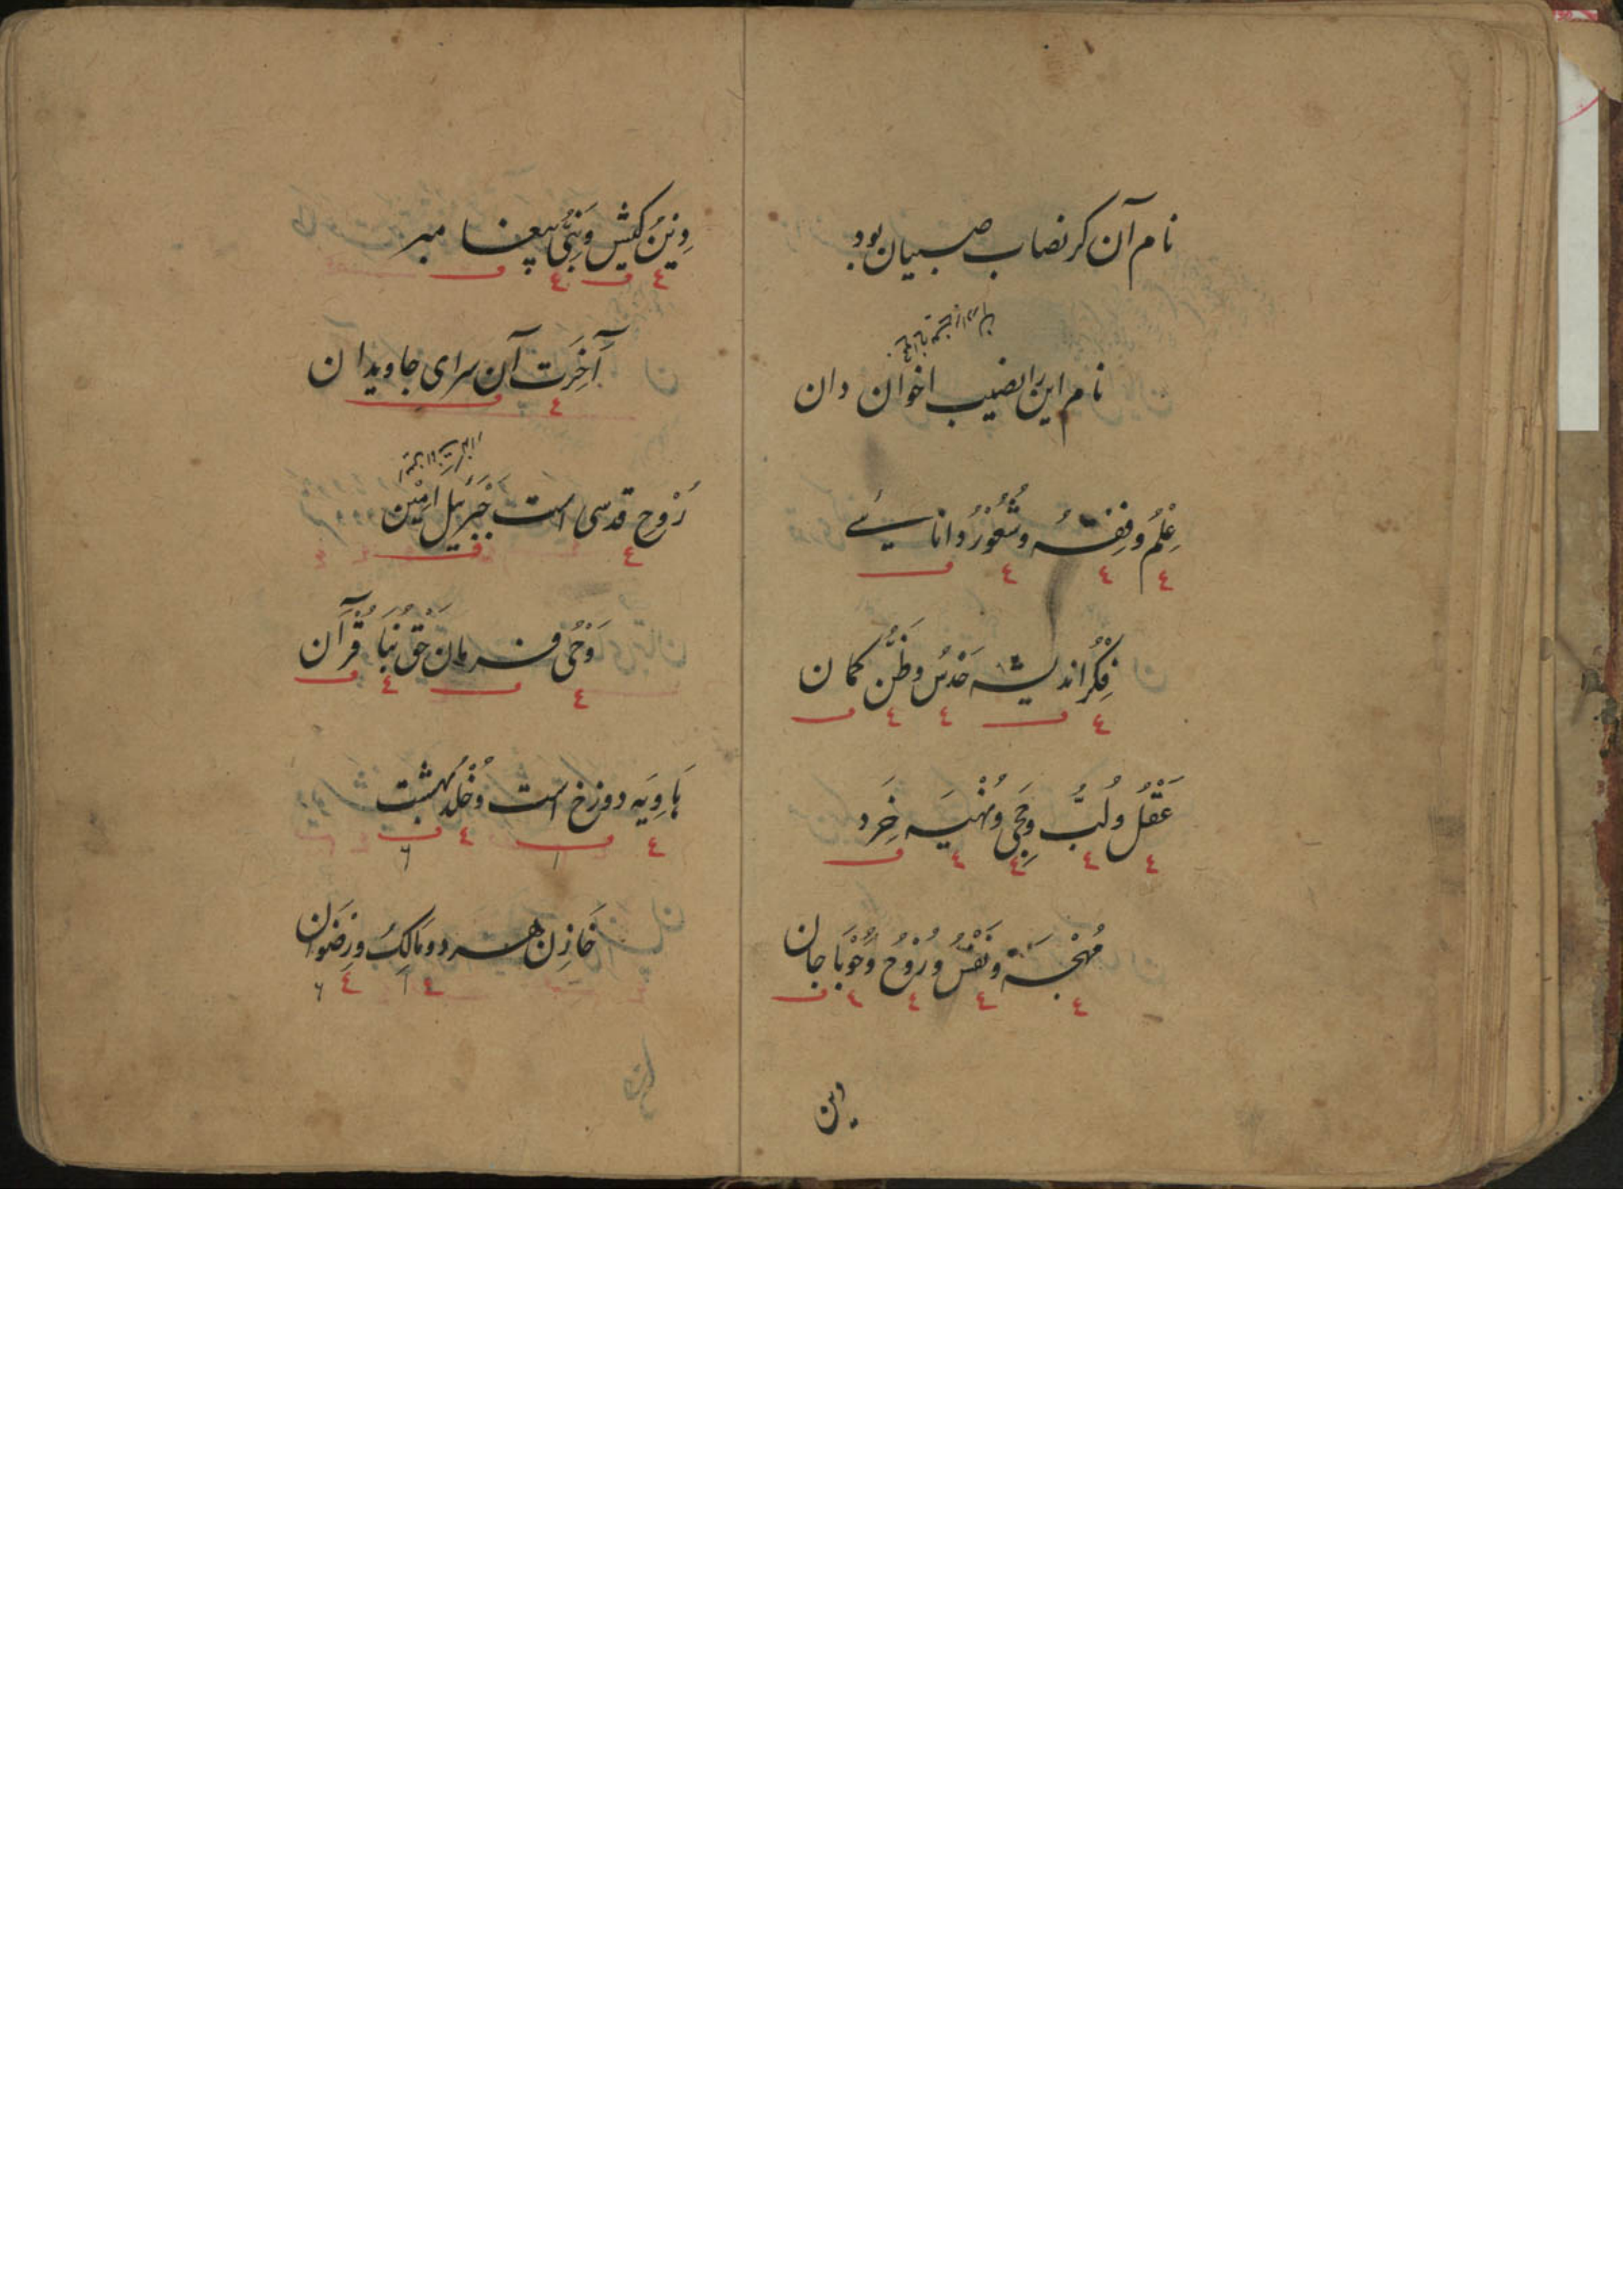 نام آن گر نصاب صبیان بود
نام این را نصیب اخوان دان
عِلْمُ و فِقْهُ و شُعُوْرُ دانائے
فِکْرُ اندیشه حَدْسُ و ظَنُّ گمان
عَقْلُ و لُبُّ و حِجیٰ و نُهْیَه خِرَد
مُهْجَة و نَفْسُ و رُوْحُ و حَوْبَا جان
دین
دِیْنُ کیش و نَبِیُّ پیغامبر
آخِرَت آن سرای جاویدان
رُوْحِ قدسی است جَبْرَئِیل اَمِیْن
وَحْیُ فرمان حَق نَبَأ قُرْآن
هَاوِیَه دوزخ است و خُلْد بهشت
خَازِن هر دو مَالِکُ و رِضْوَان